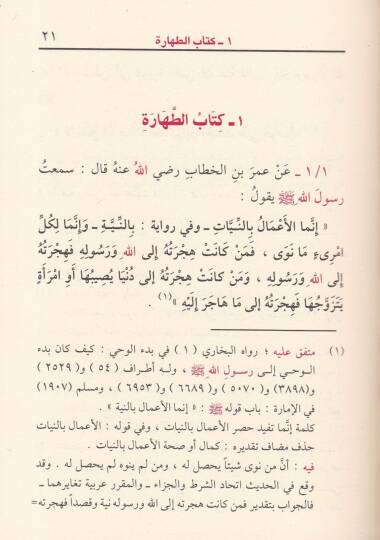 ١ ـ كتاب الطهارة ٢١
١ ـ كِتَابُ الطَّهَارَةِ
١/١ ـ عَنْ عمرَ بنِ الخطابِ رضي اللهُ عنهُ قال : سمعتُ
رسولَ اللهِ ﷺ يقولُ :
« إِنَّما الأَعْمَالُ بِالنِّيَّاتِ ـ وفي رواية : بِالنِّيَّةِ ـ وَإِنَّمَا لِكُلِّ
امْرِىءٍ مَا نَوَى ، فَمَنْ كَانَتْ هِجْرَتُهُ إلى اللهِ وَرَسُولِهِ فَهِجْرَتُهُ
إلى اللهِ وَرَسُولِهِ ، وَمَنْ كانَتْ هِجْرَتُهُ إلى دُنْيَا يُصِيبُهَا أَوِ امْرَأَةٍ
يَتَزَوَّجُهَا فَهِجْرَتُهُ إلى مَا هَاجَرَ إِلَيْهِ »(١) .
(١) متفق عليه ؛ رواه البخاري ( ١ ) في بدء الوحي : كيف كان بدء
الوحي إلى رسولِ اللهِ ﷺ ، وله أطراف ( ٥٤ ) و ( ٢٥٢٩ )
و(٣٨٩٨) و( ٥٠٧٠ ) و( ٦٦٨٩ ) و( ٦٩٥٣ ) ، ومسلم (١٩٠٧)
في الإمارة : باب قوله ﷺ : « إنما الأعمال بالنية » .
كلمة إنَّما تفيد حصر الأعمال بالنيات ، وفي قوله : الأعمال بالنيات
حذف مضاف تقديره : كمال أو صحة الأعمال بالنيات .
فيه : أنَّ من نوى شيئاً يحصل له ، ومن لم ينوه لم يحصل له . وقد
وقع في الحديث اتحاد الشرط والجزاء ـ والمقرر عربية تغايرهما ـ
فالجواب بتقدير فمن كانت هجرته إلى الله ورسوله نية وقصداً فهجرته=